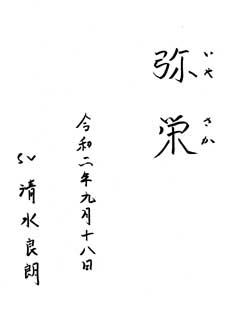 弥栄
いやさか
令和二年九月十八日
SV 清水良朗